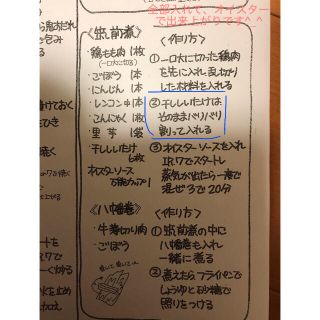 全部入れて、オイスター
で出来上がりです^ ^
《筑前煮》
・鶏もも肉 1枚
(一口大に切る)
・ごぼう 1本
・にんじん 1本
・レンコン 中1本
・こんにゃく 1枚
・里芋 1袋
・干ししいたけ
6枚
・オイスターソース
《作り方》
①一口大に切った鶏肉
を先に入れ、乱切り
した材料を入れる
②干ししいたけは
そのままバリバリ
割って入れる
③オイスターソースを入れ
IR7でスタートし
蒸気が出たら一度で
混ぜ3で20分
《八幡巻》
・牛薄切り肉
・ごぼう
《作り方》
①筑前煮の中に
八幡巻も入れ
一緒に煮る
②煮えたらフライパンで
しょうゆと砂糖で
照りをつける